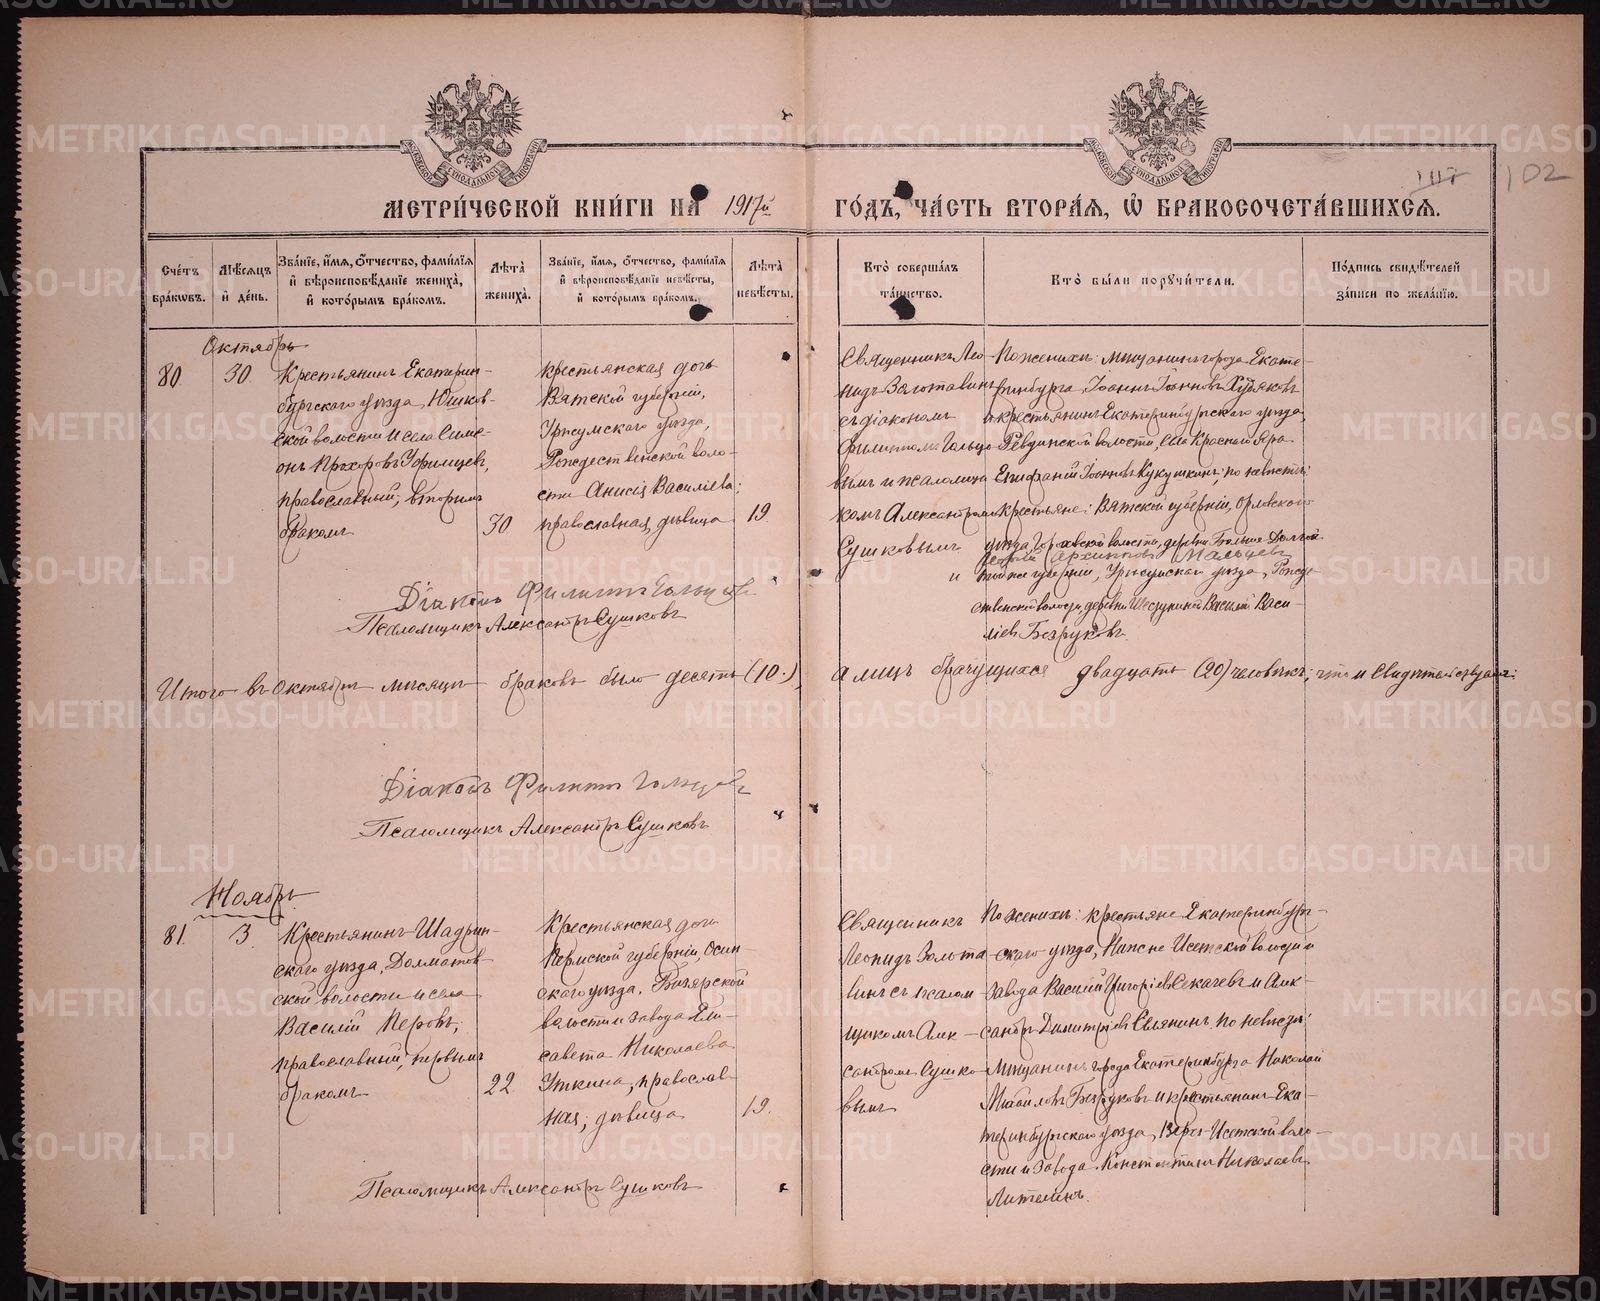 МЕТРИ́ЧЕСКОЙ КНИ́ГИ НА 1917й ГО́ДЪ, ЧА́СТЬ ВТОРА́Я, Ѡ БРАКОСОЧЕТА́ВШИХСЯ.
117 102
Сче́тъ бра́кѡвъ.
Мѣ́сяцъ и де́нь.
Зва́нїе, и́мя, ѻ́тчество, фами́лїя и вѣроисповѣ́данїе жениха̀, и кото́рымъ бра́комъ.
Лѣ́та жениха̀.
Зва́нїе, и́мя, ѻ́тчество, фами́лїя и вѣроисповѣ́данїе невѣ́сты, и кото́рымъ бра́комъ.
Лѣ́та невѣ́сты.
Кто̀ соверша́лъ та́инство.
Кто̀ бы́ли порꙋчи́тели.
По́дпись свидѣ́телей за́писи по жела́нїю.
Октябрь
80.
30.
Крестьянинъ Екатерин-
бургскаго уѣзда, Юшков-
ской волости и села Симе-
онъ Прохоровъ Уфимцевъ,
православный, вторымъ
бракомъ
30
крестьянская дочь
Вятской губерніи,
Уржумскаго уѣзда,
Рождественской воло-
сти Анисія Василіева;
православная, дѣвица
19
Священникъ Лео-
нидъ Золотавинъ
съ діакономъ
Филиппомъ Гольцо-
вымъ и псаломщи-
комъ Александромъ
Сушковымъ
По женихѣ: мѣщанинъ города Екате-
ринбурга Іоаннъ Іоанновъ Худяковъ
и крестьянинъ Екатеринбургскаго уѣзда,
Ревдинской волости, села Краснаго Яра
Епифаній Іоанновъ Кукушкинъ; по невѣстѣ:
крестьяне: Вятской губерніи, Орловскаго
уѣзда, волости, деревни Больше-
Архиповъ Мальцевъ
и той же губерніи, Уржумскаго уѣзда, Рожде-
ственской волости, деревни Василій Васи-
ліевъ Безруковъ.
Діаконъ Филиппъ Гольцовъ
Псаломщикъ Александръ Сушковъ
Итого въ Октябрѣ мѣсяцѣ браковъ было десять (10.), а лицъ брачущихся двадцать (20) человѣкъ; что и свидѣтельствуемъ:
Діаконъ Филиппъ Гольцовъ
Псаломщикъ Александръ Сушковъ
Ноябрь
81.
3.
Крестьянинъ Шадрин-
скаго уѣзда, Долматов-
ской волости и села
Василій Перовъ,
православный, первымъ
бракомъ
22
Крестьянская дочь
Пермской губерніи, Осин-
скаго уѣзда, Бизярской
волости и завода Ели-
савета Николаева
Уткина, православ-
ная, дѣвица
19.
Священникъ
Леонидъ Золота-
винъ съ псалом-
щикомъ Алек-
сандромъ Сушко-
вымъ
По женихѣ: крестьяне Екатеринбург-
скаго уѣзда, Нижне-Исетской волости и
завода Василій Григоріевъ Секачевъ и Алек-
сандръ Димитріевъ Селянинъ, по невѣстѣ:
мѣщанинъ города Екатеринбурга Николай
Михаиловъ Безруковъ и крестьянинъ Ека-
теринбургскаго уѣзда, Верхъ-Исетской воло-
сти и завода Константинъ Николаевъ
Псаломщикъ Александръ Сушковъ
METRIKI.GASO-URAL.RU